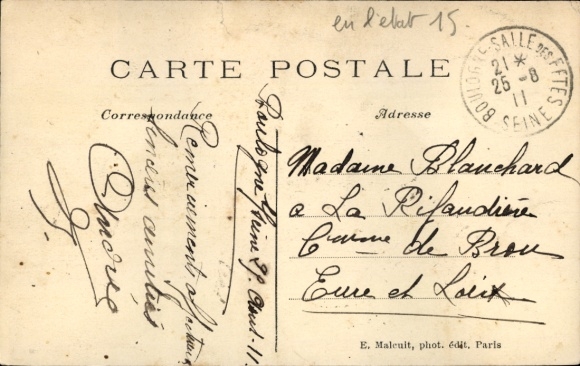 en l'état 15
BOULOGNE-SALLE DES FÊTES
21 *
25 -8
11
SEINE
CARTE POSTALE
Correspondance
Adresse
Boulogne s/Seine 25 Août 11
Remerciements et
sincères amitiés
Andrée
Madame Blanchard
a La Rifaudière
Cmune de Brou
Eure et Loir
E. Malcuit, phot. édit. Paris